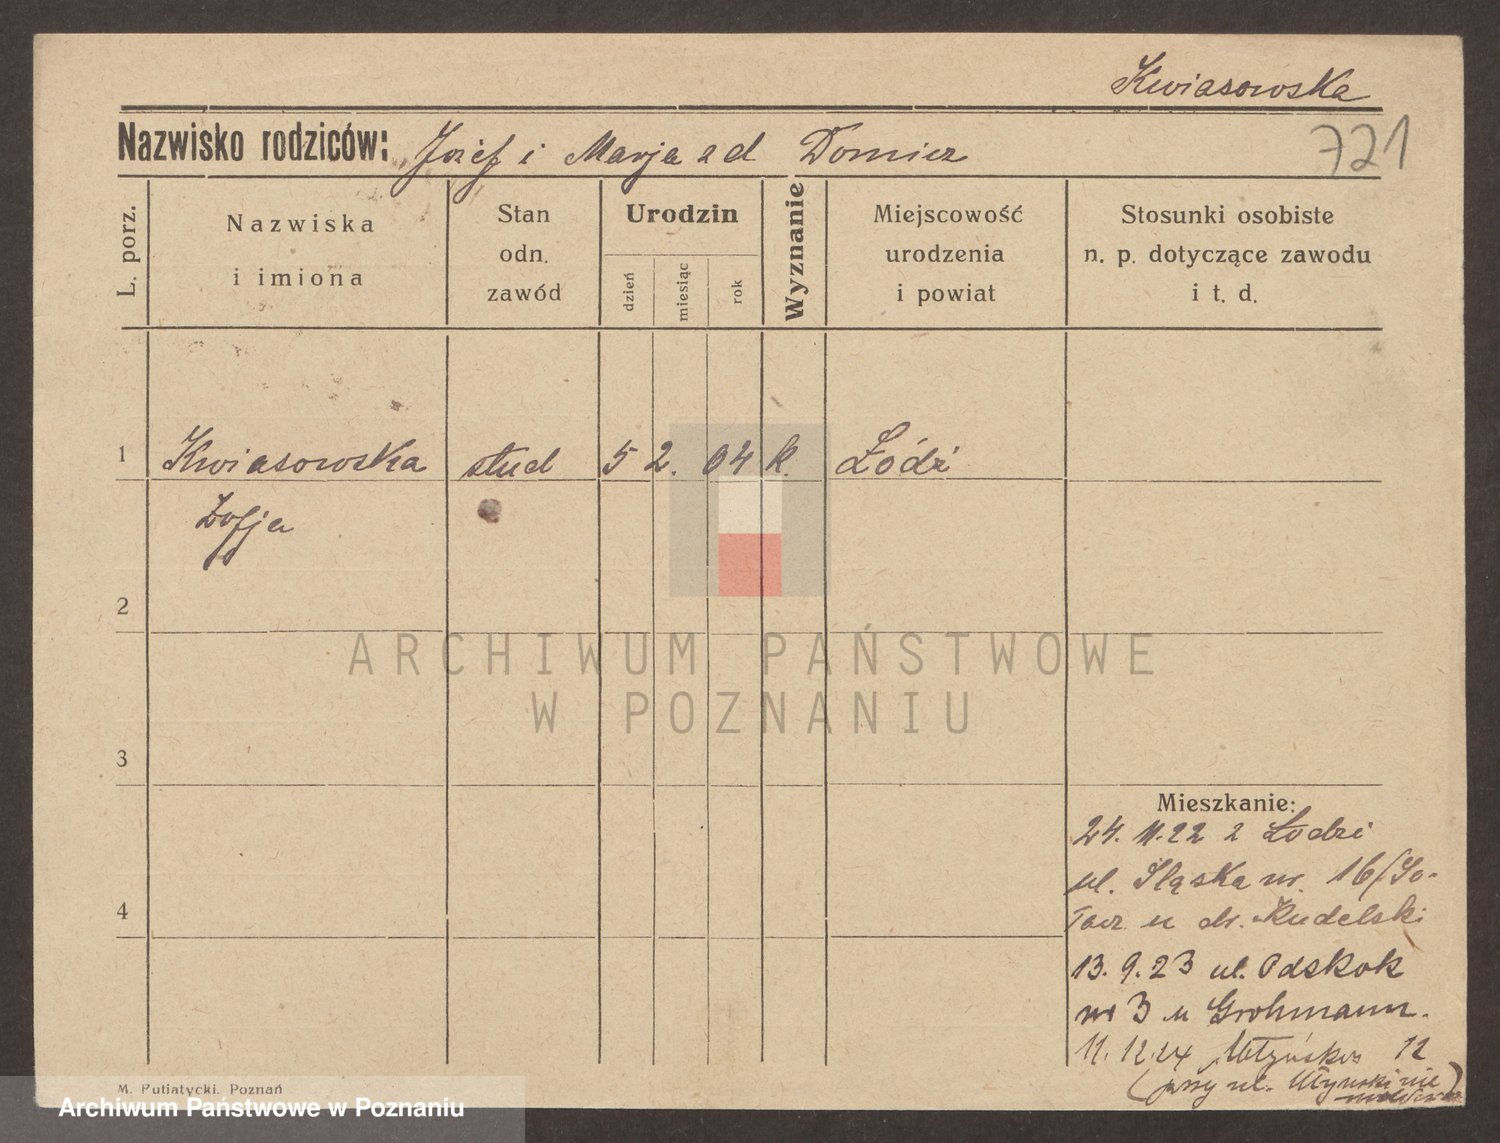 Kwiasowska
Nazwisko rodziców: Józef i Marja z d Domicz
721
L. porz.
Nazwiska
i imiona
Stan
odn.
zawód
Urodzin
dzień
miesiąc
rok
Wyznanie
Miejscowość
urodzenia
i powiat
Stosunki osobiste
n. p. dotyczące zawodu
i t. d.
1 Kwiasowska stud 5 2. 04 k. Łódź
Zofja
2
ARCHIWUM PAŃSTWOWE
W POZNANIU
3
Mieszkanie:
24. 11. 22 z Łodzi
ul. Śląska nr. 16 (So-
łacz u dr. Rudelski
4
13. 9. 23 ul. Odskok
nr 3 u Grohmann.
11. 12 24 12
(przy ul.
M. Putiatycki, Poznań
Archiwum Państwowe w Poznaniu